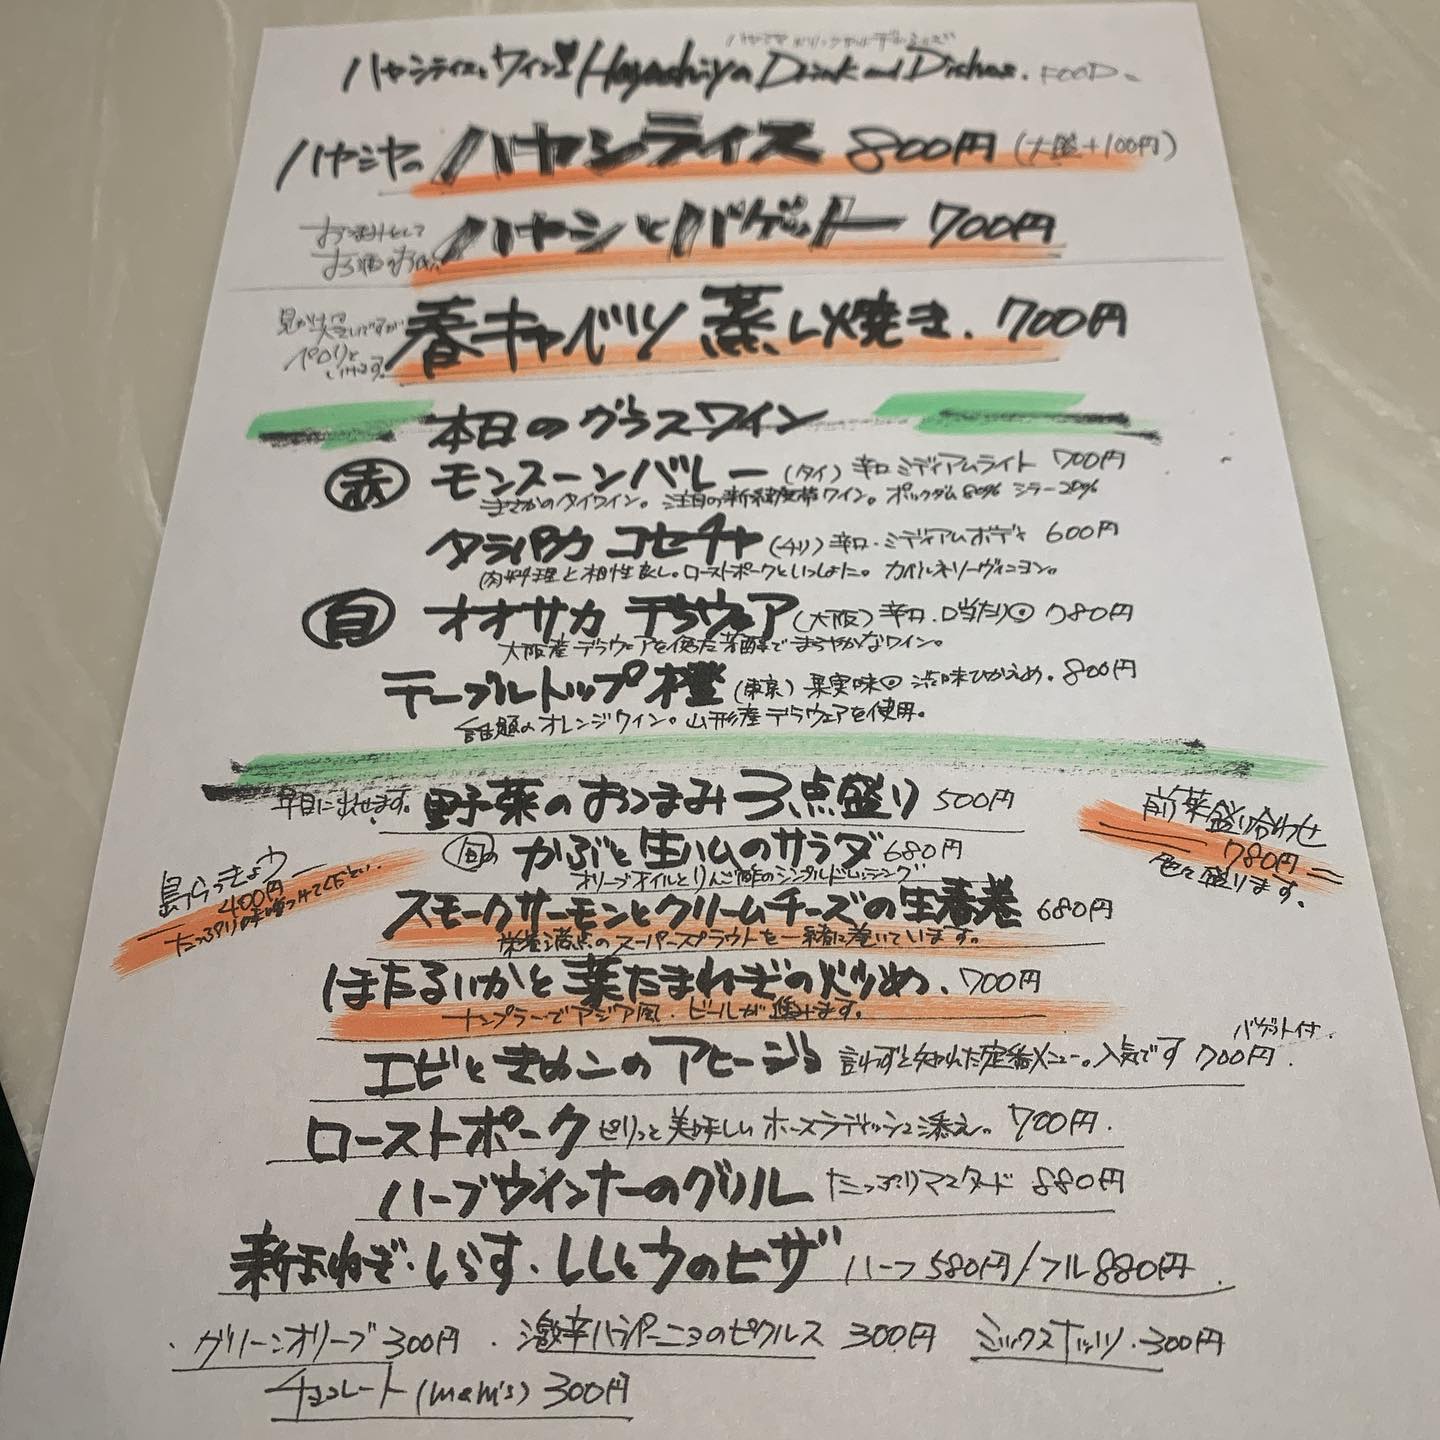 ハヤシヤ ドリンクアンドディッシーズ
ハヤシライスとワイン Hayashiya Drink and Dishes. FOOD
ハヤシヤの ハヤシライス 800円 (大盛+100円)
おつまみとして
お酒のお供に
ハヤシとバゲット 700円
見かけ大きいですが
ペロリと
いけます。
春キャベツ蒸し焼き. 700円
本日のグラスワイン
赤 モンスーンバレー (タイ) 辛口 ミディアムライト 700円
まさかのタイワイン。注目の新緯度帯ワイン。ポックダム80% シラー20%
タラパカ コセチャ (チリ) 辛口・ミディアムボディ 600円
肉料理と相性良し。ローストポークといっしょに。カベルネソーヴィニヨン。
白 オオサカ デラウェア (大阪) 辛口. 口当たり◎ 780円
大阪産デラウェアを使った芳醇でまろやかなワイン。
テーブルトップ 橙 (東京) 果実味◎ 渋味ひかえめ. 800円
話題のオレンジワイン。山形産デラウェアを使用。
早目に出せます。 野菜のおつまみ3点盛り 500円
前菜盛り合わせ
780円
色々盛ります。
旬の かぶと生ハムのサラダ 680円
オリーブオイルとりんご酢のシンプルドレッシング
島らっきょう
400円
たっぷり味噌つけてください..
スモークサーモンとクリームチーズの生春巻 680円
栄養満点のスーパースプラウトを一緒に巻いています。
ほたるいかと葉たまねぎの炒め. 700円
ナンプラーでアジア風. ビールが進みます。
エビときのこのアヒージョ 言わずと知れた定番メニュー。人気です 700円.
バゲット付
ローストポーク ピリっと美味しいホースラディッシュ添え.. 700円.
ハーブウインナーのグリル たっぷりマスタード 880円
新玉ねぎ・しらす・ししとうのピザ ハーフ580円/フル880円
・グリーンオリーブ300円 ・激辛ハラペーニョのピクルス 300円 ミックスナッツ・300円
チョコレート(m&m's) 300円